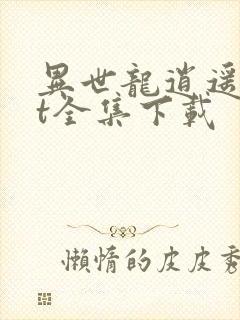 異世龍逍遥
t全集下載
懶惰的皮皮秀